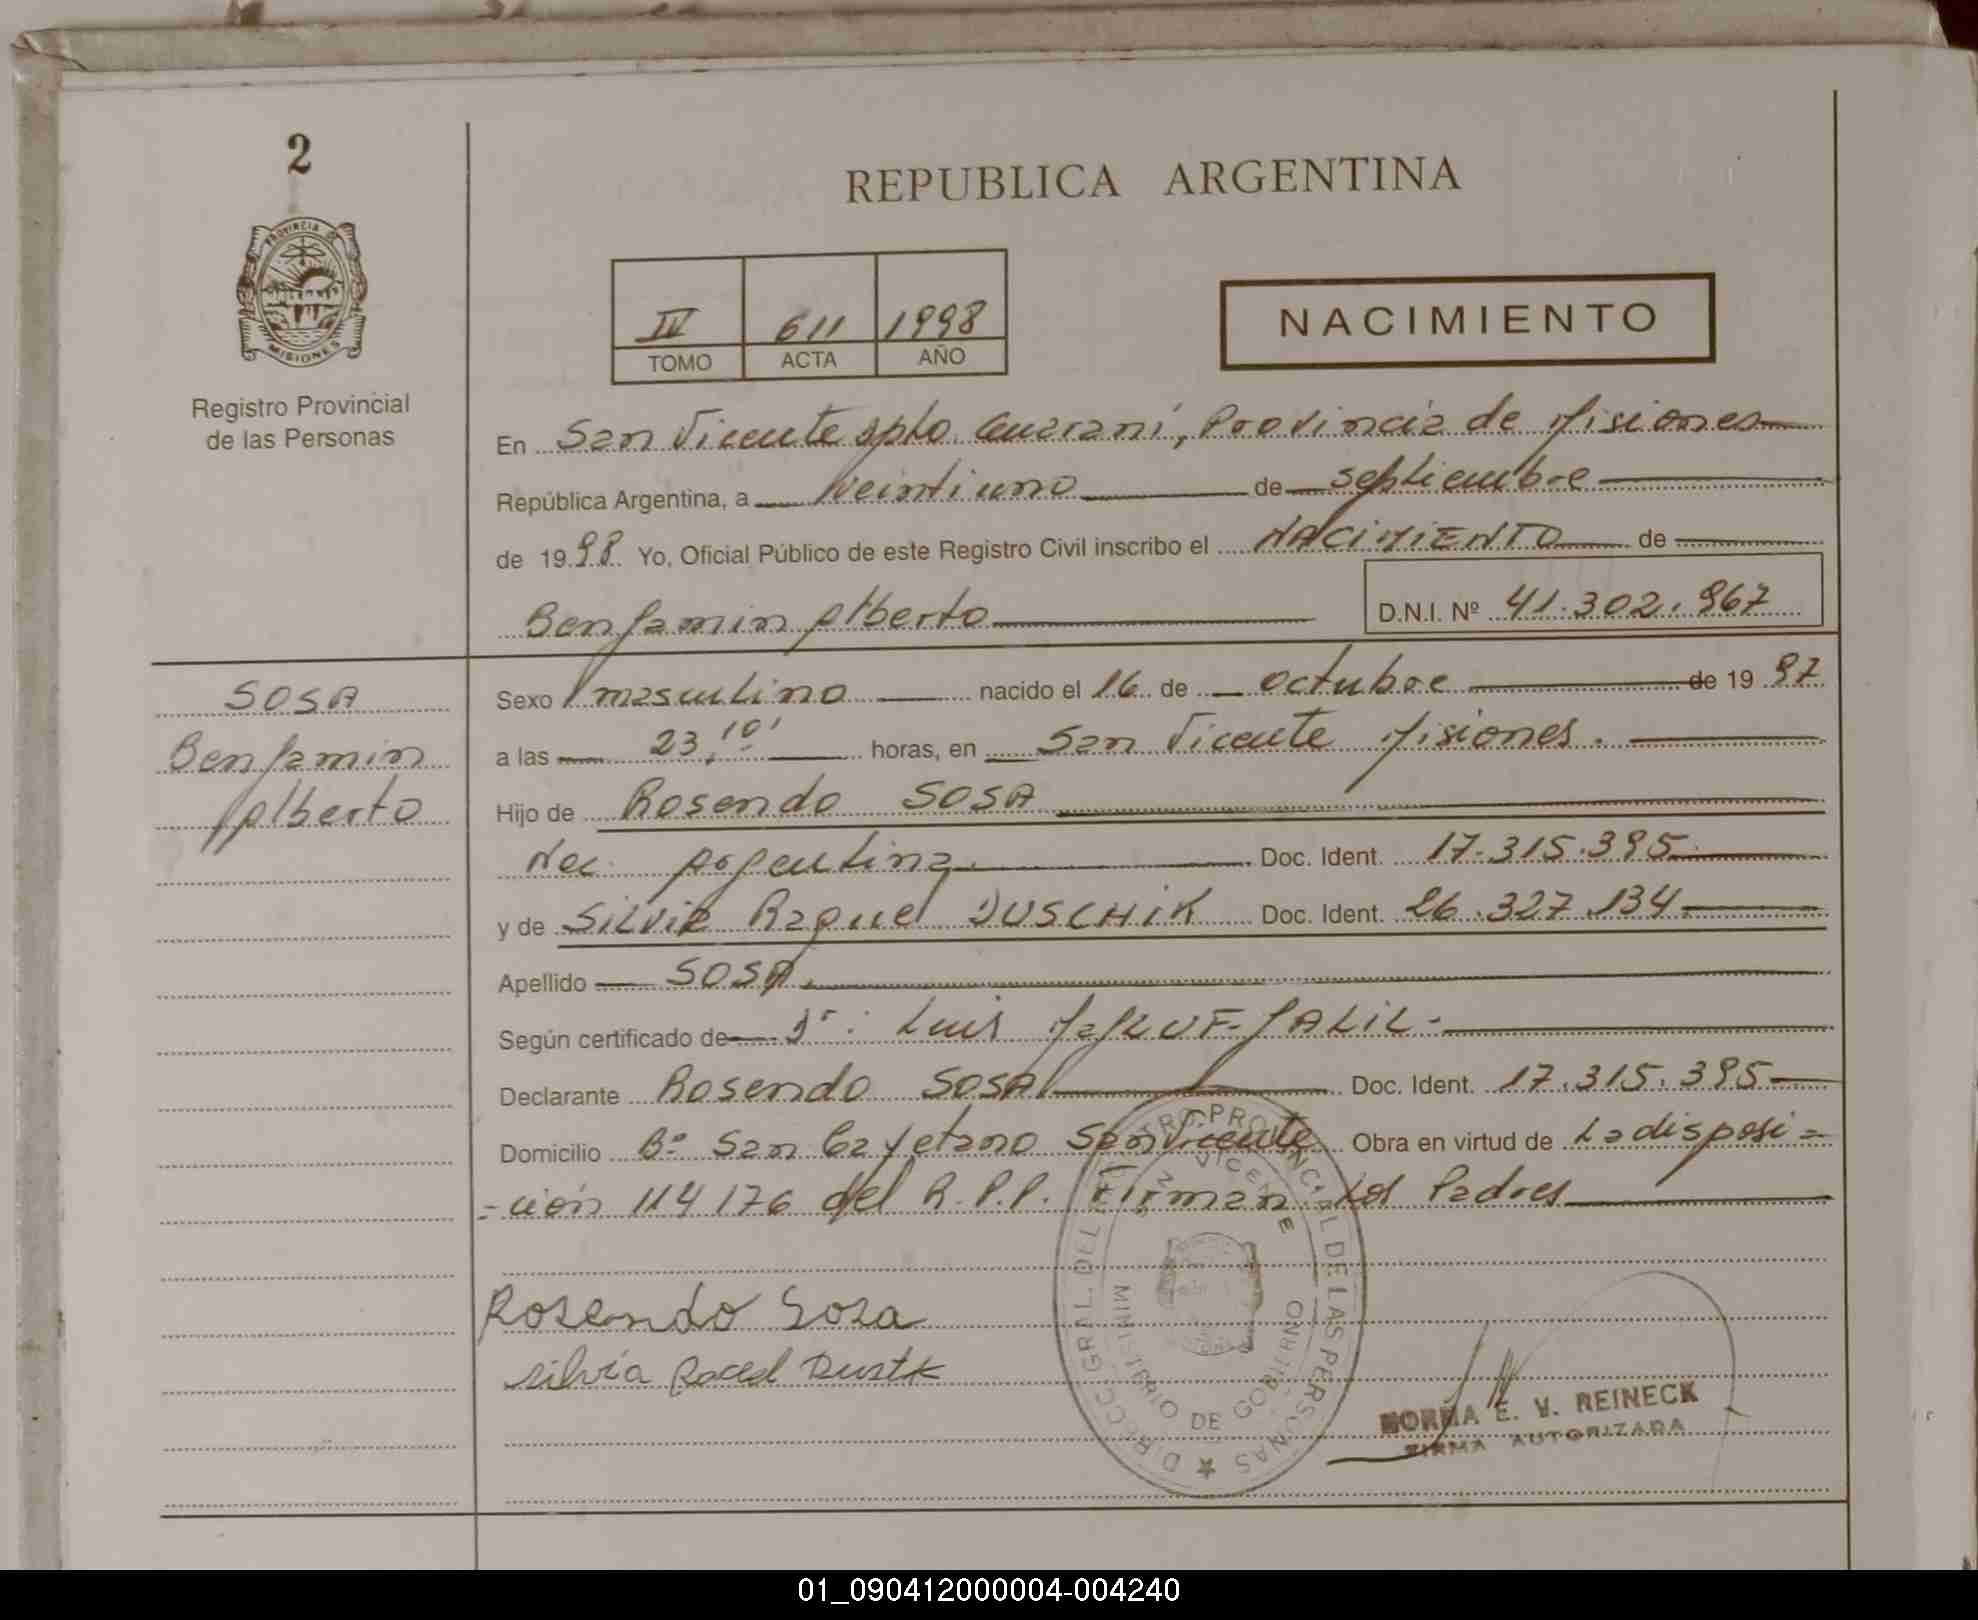 2
PROVINCIA DE
MISIONES
Registro Provincial
de las Personas
REPUBLICA ARGENTINA
IV 611 1998
TOMO ACTA AÑO
NACIMIENTO
En San Vicente Dpto. Guaraní, Provincia de Misiones
República Argentina, a veintiuno de septiembre
de 1998 Yo, Oficial Público de este Registro Civil inscribo el NACIMIENTO de
Benjamin Alberto D.N.I. Nº 41.302.967
SOSA
Benjamin
Alberto
Sexo masculino nacido el 16 de octubre de 1997
a las 23,10' horas, en San Vicente Misiones.
Hijo de Rosendo SOSA
Nac. Argentina. Doc. Ident. 17.315.395
y de SILVIA Raquel DUSCHIK Doc. Ident. 26.327.134
Apellido SOSA.
Según certificado de Dr: Luis JALIL-
Declarante Rosendo SOSA Doc. Ident. 17.315.395
Domicilio Bº San Cayetano San Vicente Obra en virtud de La disposi=
=ción 114/76 del R.P.P. Firman Los Padres
Rosendo Sosa
silvia
DIRECC. GRAL. DEL REGISTRO PROVINCIAL DE LAS PERSONAS
SAN VICENTE
MINISTERIO DE GOBIERNO
NORMA E. V. REINECK
FIRMA AUTORIZADA
01_090412000004-004240